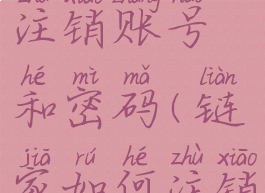 zhù xiāo zhàng hào
注销账号
hé mì mǎ liàn
和密码(链
jiā rú hé zhù xiāo
家如何注销